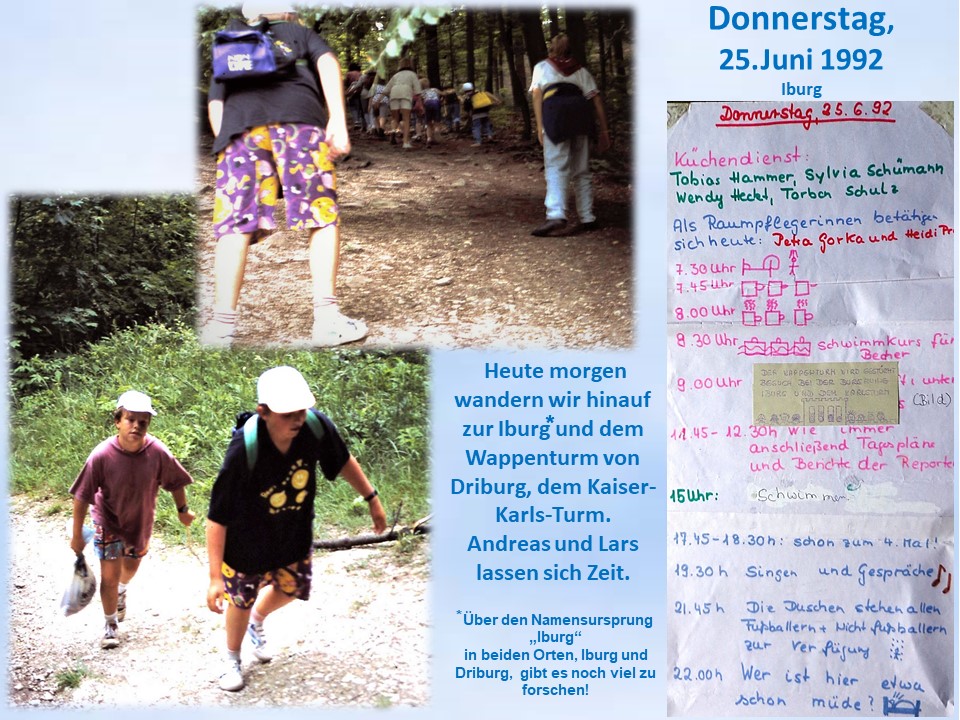 Donnerstag,
25.Juni 1992
Iburg
Heute morgen
wandern wir hinauf
zur Iburg* und dem
Wappenturm von
Driburg, dem Kaiser-
Karls-Turm.
Andreas und Lars
lassen sich Zeit.
*Über den Namensursprung
„Iburg“
in beiden Orten, Iburg und
Driburg, gibt es noch viel zu
forschen!
Donnerstag, 25.6.92
Küchendienst:
Tobias Hammer, Sylvia Schümann
Wendy Hecht, Torben Schulz
Als Raumpflegerinnen betätigen
sich heute: Petra Gorka und Heidi Pr
7.30 Uhr
7.45 Uhr
8.00 Uhr
8.30 Uhr Schwimmkurs für
Becher
9.00 Uhr
DER WAPPENTURM WIRD GESUCHT
BESUCH BEI DER BURGRUINE
IBURG UND DEM KARLSTURM
unter
(Bild)
11.45 - 12.30h wie immer
anschließend Tagespläne
und Berichte der Reporte
15 Uhr: Schwimmen
17.45 - 18.30h: schon zum 4. Mal!
19.30h Singen und Gespräche
21.45h Die Duschen stehen allen
Fußballern + Nicht fußballern
zur Verfügung
22.00h Wer ist hier etwa
schon müde?